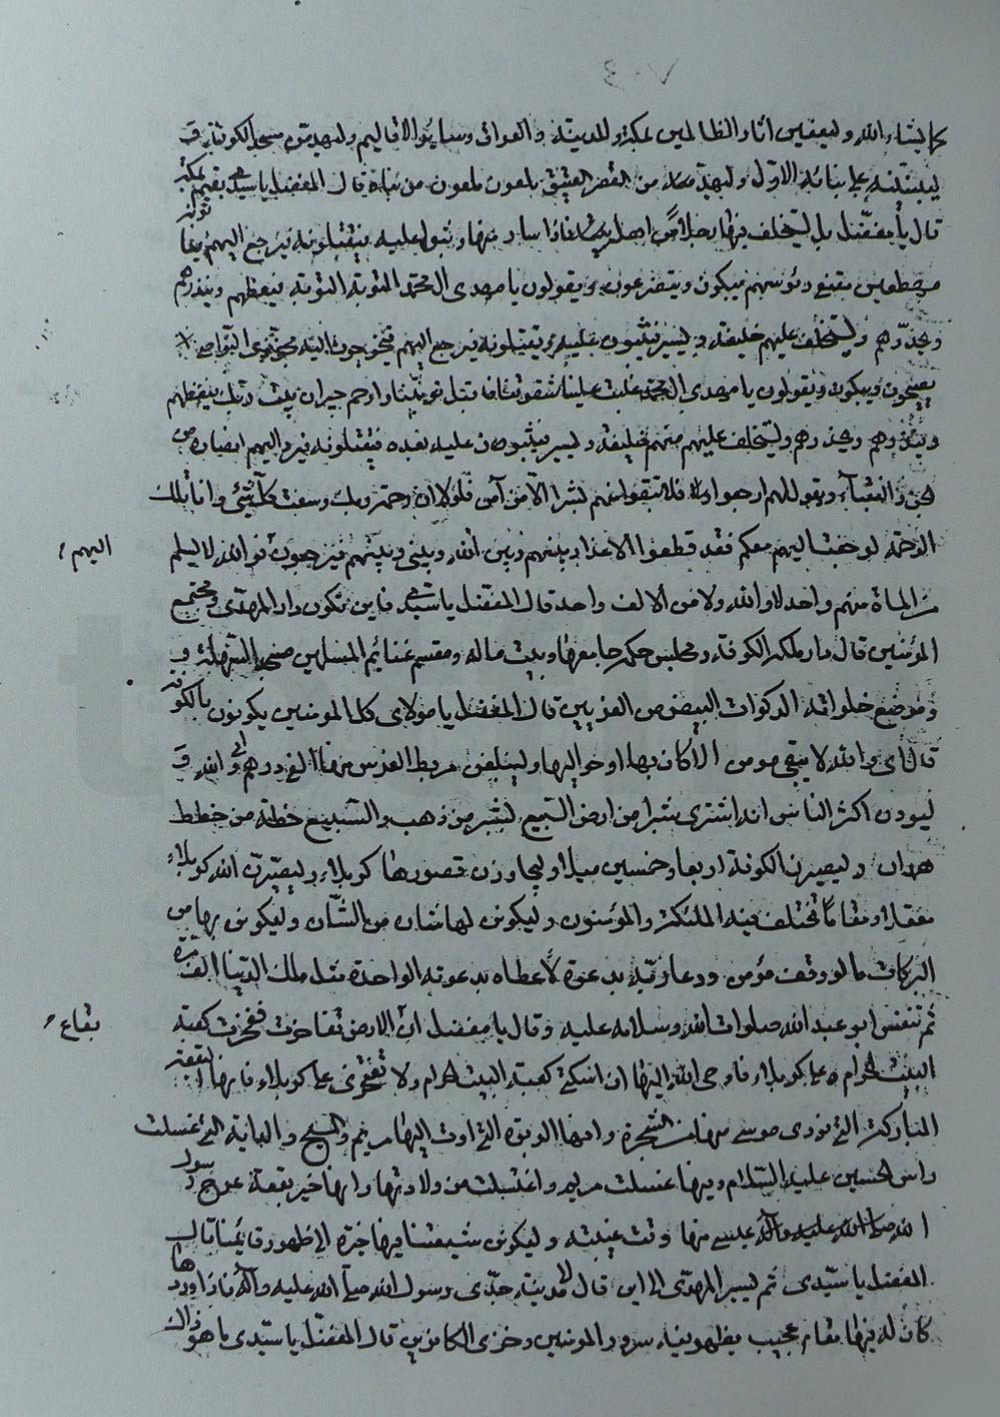 كما يشاء الله وليعفين آثار الظالمين بمكة والمدينة والعراق وسائر الاقاليم وليهدمن مسجد الكوفة و
ليبنينه على بنائه الاول وليهدمن القصر العتيق ملعون ملعون من بناه قال المفضل يا سيدي يقيم بمكة
قال يا مفضل بل يستخلف فيها رجلا من اهله فاذا سار منها وثبوا عليه فيقتلونه فيرجع اليهم فياتونه
مهطعين مقنعي رؤسهم يبكون ويتضرعون ويقولون يا مهدي آل محمد التوبة التوبة فيعظهم وينذرهم
ويحذرهم ويستخلف عليهم خليفة ويسير فيثبون عليه فيقتلونه فيرجع اليهم فيخرجون اليه مجززي النواصي
يصيحون ويبكون ويقولون يا مهدي آل محمد غلبت علينا شقوتنا فاقبل توبتنا وارحم جيران بيت ربك فيعظهم
وينذرهم ويحذرهم ويستخلف عليهم منهم خليفة ويسير فيثبون عليه بعده فيقتلونه فيرد اليهم انصاره من
الجن والنقباء ويقول لهم ارجعوا فلا تبقوا منهم بشرا الا من آمن فلولا ان رحمة ربك وسعت كل شيء وانا تلك
الرحمة لرجعت اليهم معكم فقد قطعوا الاعذار بينهم وبين الله وبيني وبينهم فيرجعون فوالله لا يسلم
اليهم
من الماة منهم واحد لا والله ولا من الالف واحد قال المفضل يا سيدي فاين تكون دار المهدي ومجتمع
المؤمنين قال دار ملكه الكوفة ومجلس حكمه جامعها وبيت ماله ومقسم غنائم المسلمين مسجد السهلة و
وموضع خلواته الذكوات البيض من الغريين قال المفضل يا مولاي كل المومنين يكونون بالكوفة
قال اي والله لا يبقى مومن الا كان بها او حواليها وليبلغن مربط الفرس منها الفي درهم اي والله و
ليودن اكثر الناس انه اشترى شبرا من ارض السبع بشبر من ذهب والسبع خطة من خطط
همدان وليصيرن الكوفة اربعا وخمسين ميلا وليجاوزن قصورها كربلاء وليصيرن الله كربلاء
معقلا ومقاما تختلف فيه الملئكة والمؤمنون وليكونن لها شان من الشان وليكونن بها من
البركات ما لو وقف مؤمن ودعا ربه بدعوة لاعطاه بدعوته الواحدة مثل ملك الدنيا الف مرة
ثم تنفس ابو عبد الله صلوات الله وسلامه عليه وقال يا مفضل ان الارض تفاخرت ففخرت كعبة
بقاع
البيت الحرام على كربلاء فاوحى الله اليها ان اسكتي كعبة البيت الحرام ولا تفتخري على كربلاء فانها البقعة
المباركة التي نودي موسى منها من الشجرة وانها الربوة التي اوت اليها مريم والمسيح والدالية التي غسلت
راس الحسين عليه السلام وفيها غسلت مريم واغتسلت من ولادتها وانها خير بقعة عرج رسول
الله صلى الله عليه وآله منها وقت غيبته وليكونن شيعتنا فيها خيرة الى ظهور قايمنا قال
المفضل يا سيدي ثم يسير المهدي الى اين قال لا مدينة جدي رسول الله صلى الله عليه وآله فاذا وردها
كان له فيها مقام عجيب يظهر فيه سرور المومنين وخزي الكافرين قال المفضل يا سيدي ما هو ذاك